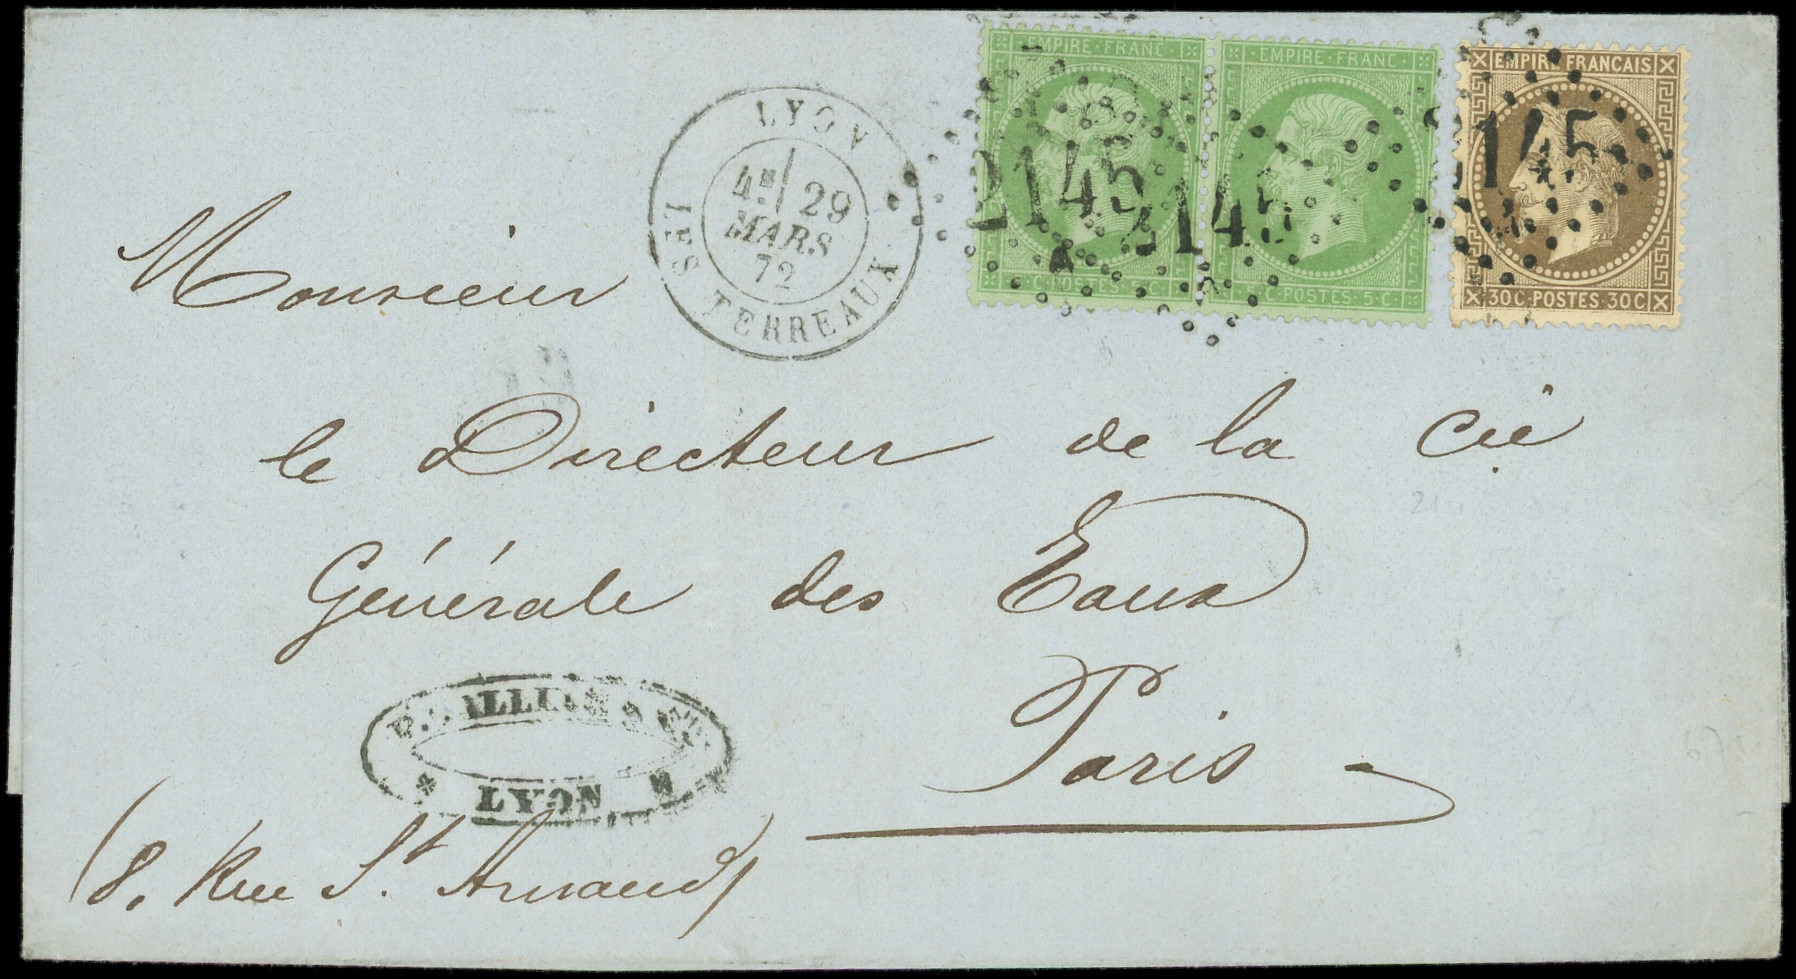 EMPIRE · FRANC · EMPIRE · FRANC · EMPIRE FRANCAIS
2145 2145 2145
A
C · POSTES · C · POSTES · 5 · C · 30C · POSTES · 30C
LYON
4E 29
MARS
72
LES TERREAUX
Monsieur
le Directeur de la Cie
Générale des Eaux
Paris
LYON
(8, Rue St. Arnaud)